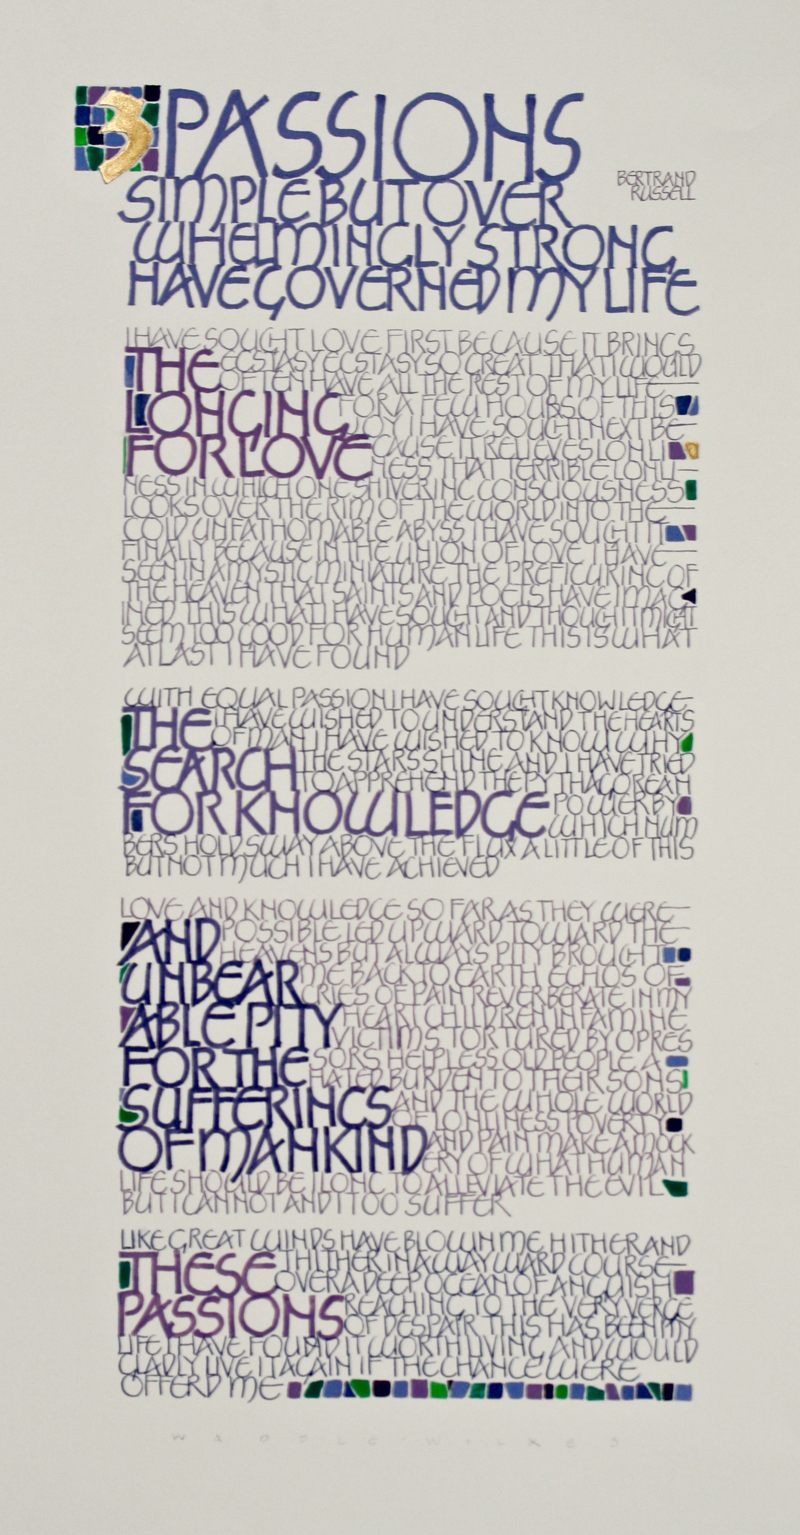 3 PASSIONS
BERTRAND
RUSSELL
SIMPLE BUT OVER
WHELMINGLY STRONG
HAVE GOVERNED MY LIFE
I HAVE SOUGHT LOVE FIRST BECAUSE IT BRINGS
THE ECSTASY ECSTASY SO GREAT THAT I WOULD
OFTEN HAVE ALL THE REST OF MY LIFE
LONGING FOR A FEW HOURS OF THIS
JOY I HAVE SOUGHT NEXT BE
FOR LOVE CAUSE IT RELIEVES LONLI
NESS THAT TERRIBLE LONLI
NESS IN WHICH ONE SHIVERING CONSCIOUSNESS
LOOKS OVER THE RIM OF THE WORLD INTO THE
COLD UNFATHOMABLE ABYSS I HAVE SOUGHT IT
FINALLY BECAUSE IN THE UNION OF LOVE I HAVE
SEEN IN A MYSTIC MINIATURE THE PREFIGURING OF
THE HEAVEN THAT SAINTS AND POETS HAVE IMAG
INED THIS IS WHAT I HAVE SOUGHT AND THOUGH IT MIGHT
SEEM TOO GOOD FOR HUMAN LIFE THIS IS WHAT
AT LAST I HAVE FOUND
WITH EQUAL PASSION I HAVE SOUGHT KNOWLEDGE
THE I HAVE WISHED TO UNDERSTAND THE HEARTS
OF MAN I HAVE WISHED TO KNOW WHY
SEARCH THE STARS SHINE AND I HAVE TRIED
TO APPREHEND THE PYTHAGOREAN
FOR KNOWLEDGE POWER BY
WHICH NUM
BERS HOLD SWAY ABOVE THE FLUX A LITTLE OF THIS
BUT NOT MUCH I HAVE ACHIEVED
LOVE AND KNOWLEDGE SO FAR AS THEY WERE
AND POSSIBLE LED UPWARD TOWARD THE
HEAVENS BUT ALWAYS PITY BROUGHT
UNBEAR ME BACK TO EARTH ECHOS OF
CRIES OF PAIN REVERBERATE IN MY
ABLE PITY HEART CHILDREN IN FAMINE
VICTIMS TORTURED BY OPRES
FOR THE SORS HELPLESS OLD PEOPLE A
HATED BURDEN TO THEIR SONS
SUFFERINGS AND THE WHOLE WORLD
OF LONLINESS POVERTY
OF MANKIND AND PAIN MAKE A MOCK
ERY OF WHAT HUMAN
LIFE SHOULD BE I LONG TO ALLEVIATE THE EVIL
BUT I CANNOT AND I TOO SUFFER
LIKE GREAT WINDS HAVE BLOWN ME HITHER AND
THESE THITHER IN A WAYWARD COURSE
OVER A DEEP OCEAN OF ANGUISH
PASSIONS REACHING TO THE VERY VERGE
OF DESPAIR THIS HAS BEEN MY
LIFE I HAVE FOUND IT WORTH LIVING AND WOULD
GLADLY LIVE IT AGAIN IF THE CHANCE WERE
OFFERD ME